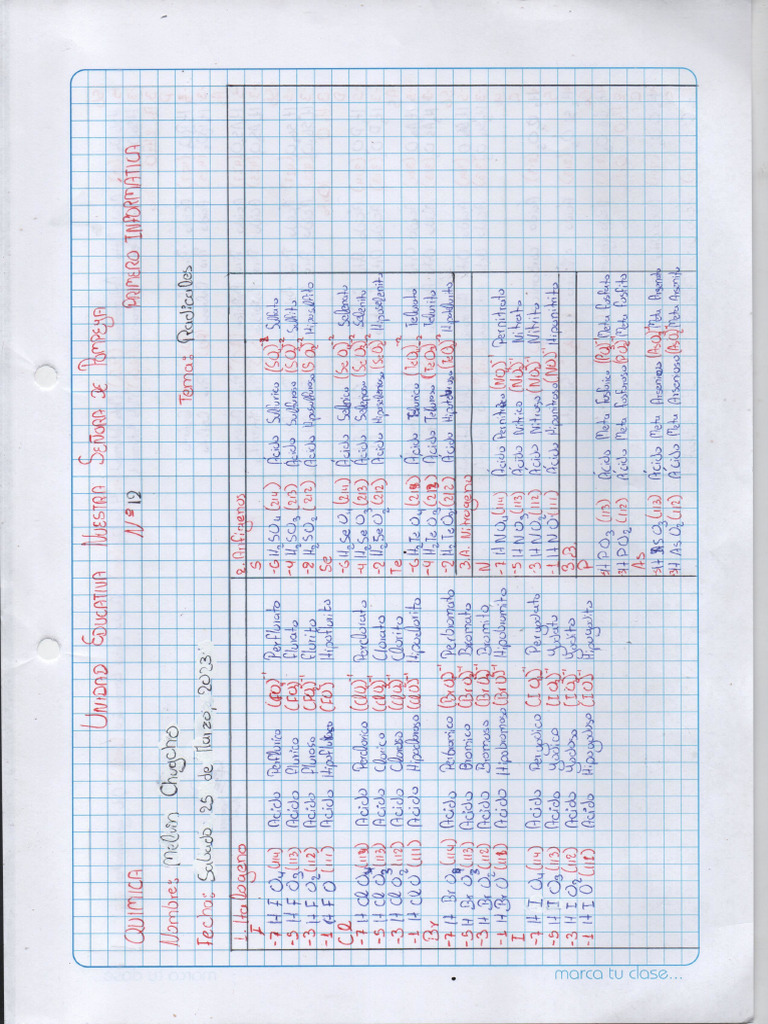 UNIDAD EDUCATIVA NUESTRA SEÑORA DE POMPEYA
QUIMICA Nº 12 PRIMERO INFORMÁTICA
Nombre: Melvin Chugcho
Fecha: Sabado 25 de Marzo, 2023 Tema: Radicales
1. Halogeno
F
-7 H F O4 (114) Acido Perflurico (FO4)-1 Perflurato
-5 H F O3 (113) Acido Flurico (FO3)-1 Flurato
-3 H F O2 (112) Acido Fluroso (FO2)-1 Flurito
-1 H F O (111) Acido Hipofluroso (FO)-1 Hipoflurito
Cl
-7 H Cl O4 (114) Acido Perclorico (ClO4)-1 Perclorato
-5 H Cl O3 (113) Acido Clorico (ClO3)-1 Clorato
-3 H Cl O2 (112) Acido Cloroso (ClO2)-1 Clorito
-1 H Cl O (111) Acido Hipocloroso (ClO)-1 Hipoclorito
Br
-7 H Br O4 (114) Acido Perbromico (BrO4)-1 Perbromato
-5 H Br O3 (113) Acido Bromico (BrO3)-1 Bromato
-3 H Br O2 (112) Acido Bromoso (BrO2)-1 Bromito
-1 H Br O (111) Acido Hipobromoso (BrO)-1 Hipobromito
I
-7 H I O4 (114) Acido Peryodico (IO4)-1 Peryodato
-5 H I O3 (113) Acido Yodico (IO3)-1 Yodato
-3 H I O2 (112) Acido Yodoso (IO2)-1 Yodito
-1 H I O Acido Hipoyodoso (IO)-1 Hipoyodito
2. Anfigenos
S
-6 H2SO4 (214) Ácido Sulfurico (SO4)-2 Sulfato
-4 H2SO3 (213) Acido Sulfuroso (SO3)-2 Sulfito
-2 H2SO2 (212) Acido Hiposulfuroso (SO2)-2 Hiposulfito
Se
-6 H2SeO4 (214) Ácido Selenico (SeO4)-2 Selenato
-4 H2SeO3 (213) Acido Selenioso (SeO3)-2 Selenito
-2 H2SeO2 (212) Acido Hiposelenioso (SeO2)-2 Hiposelenito
Te
-6 H2TeO4 Ácido Telurico (TeO4)-2 Telurato
-4 H2TeO3 Acido Teluroso (TeO3)-2 Telurito
-2 H2TeO2 (212) Acido Hipoteluroso (TeO2)-2 Hipotelurito
3.A. Nitrogeno
N
-7 HNO4 (114) Acido Pernitrico (NO4)-1 Pernitrato
-5 HNO3 (113) Ácido Nitrico (NO3)-1 Nitrato
-3 HNO2 (112) Ácido Nitroso (NO2)-1 Nitrito
-1 HNO (111) Ácido Hiponitroso (NO)-1 Hiponitrito
3.B
P
HPO3 (113) Ácido Meta Fosforico (PO3)-1 Meta Fosfato
HPO2 (112) Ácido Meta Fosforoso (PO2)-1 Meta Fosfito
As
HAsO3 Ácido Meta Arsenico (AsO3)-1 Meta Arsenato
HAsO2 (112) Ácido Meta Arsenoso (AsO2)-1 Meta Arsenito
marca tu clase...